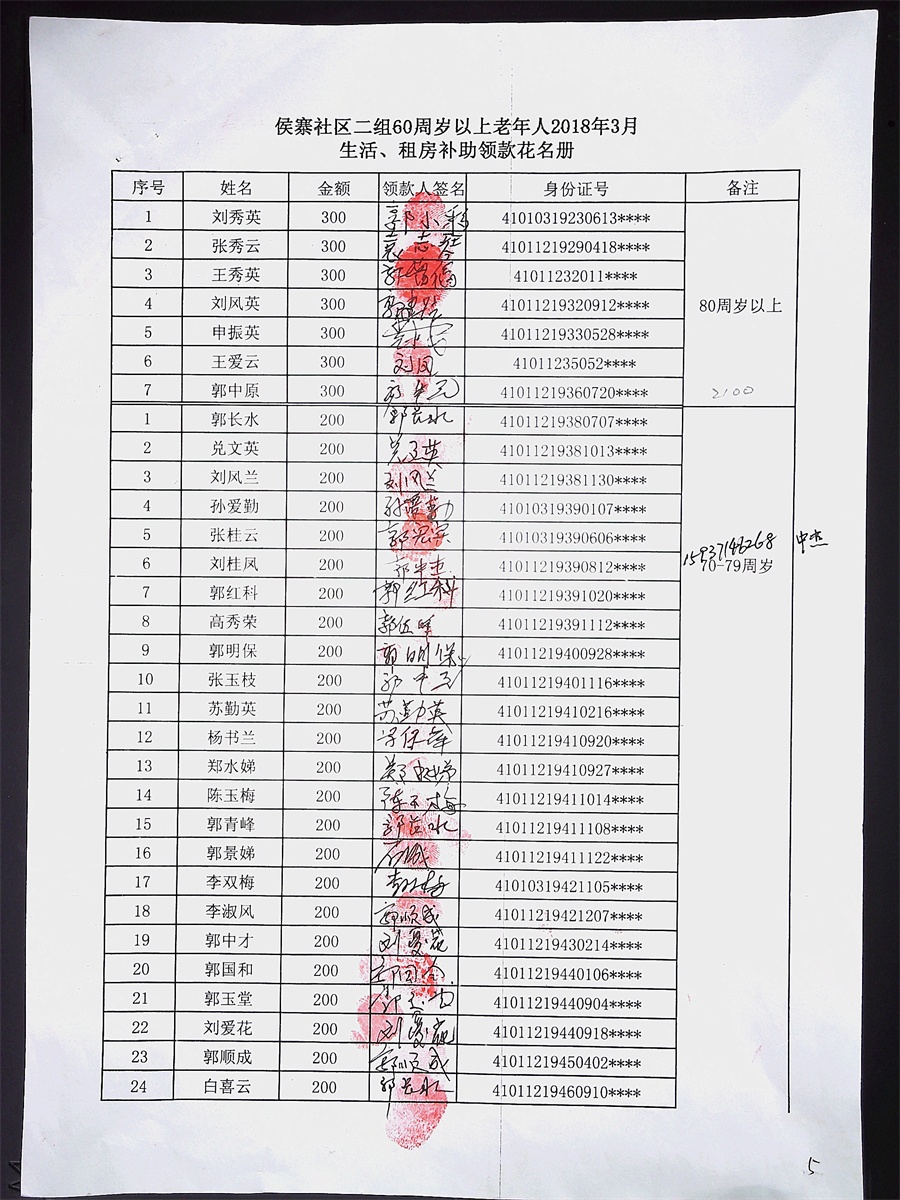 侯寨社区二组60周岁以上老年人2018年3月
生活、租房补助领款花名册
序号 姓名 金额 领款人签名 身份证号 备注
1 刘秀英 300 郭小彩 41010319230613****
2 张秀云 300 41011219290418****
3 王秀英 300 41011232011****
4 刘风英 300 41011219320912**** 80周岁以上
5 申振英 300 41011219330528****
6 王爱云 300 刘凤 41011235052****
7 郭中原 300 41011219360720**** 2100
1 郭长水 200 郭长水 41011219380707****
2 兑文英 200 兑文英 41011219381013****
3 刘风兰 200 刘风兰 41011219381130****
4 孙爱勤 200 孙爱勤 41010319390107****
5 张桂云 200 41010319390606**** 15937146268 中杰
6 刘桂凤 200 41011219390812**** 70-79周岁
7 郭红科 200 郭红科 41011219391020****
8 高秀荣 200 41011219391112****
9 郭明保 200 郭明保 41011219400928****
10 张玉枝 200 41011219401116****
11 苏勤英 200 苏勤英 41011219410216****
12 杨书兰 200 41011219410920****
13 郑水娣 200 郑水娣 41011219410927****
14 陈玉梅 200 陈玉梅 41011219411014****
15 郭青峰 200 郭长水 41011219411108****
16 郭景娣 200 41011219411122****
17 李双梅 200 李双梅 41010319421105****
18 李淑风 200 郭顺成 41011219421207****
19 郭中才 200 刘爱花 41011219430214****
20 郭国和 200 41011219440106****
21 郭玉堂 200 41011219440904****
22 刘爱花 200 刘爱花 41011219440918****
23 郭顺成 200 郭顺成 41011219450402****
24 白喜云 200 郭长水 41011219460910****
5